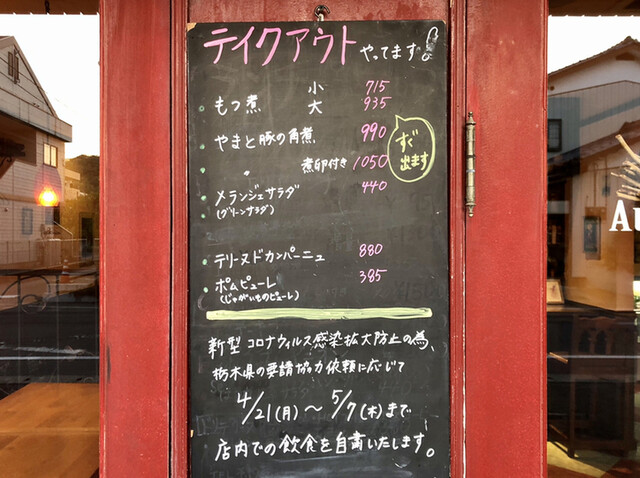 テイクアウト やってます
もつ煮 小 715
大 935
やまと豚の角煮 990
〃 煮卵付き 1050
すぐ
出ます
メランジェサラダ 440
(グリーンサラダ)
テリーヌドカンパーニュ 880
ポムピューレ 385
(じゃがいものピューレ)
新型コロナウィルス感染拡大防止の為、
栃木県の要請協力依頼に応じて
4/21(月)〜5/7(木)まで
店内での飲食を自粛いたします。
Au